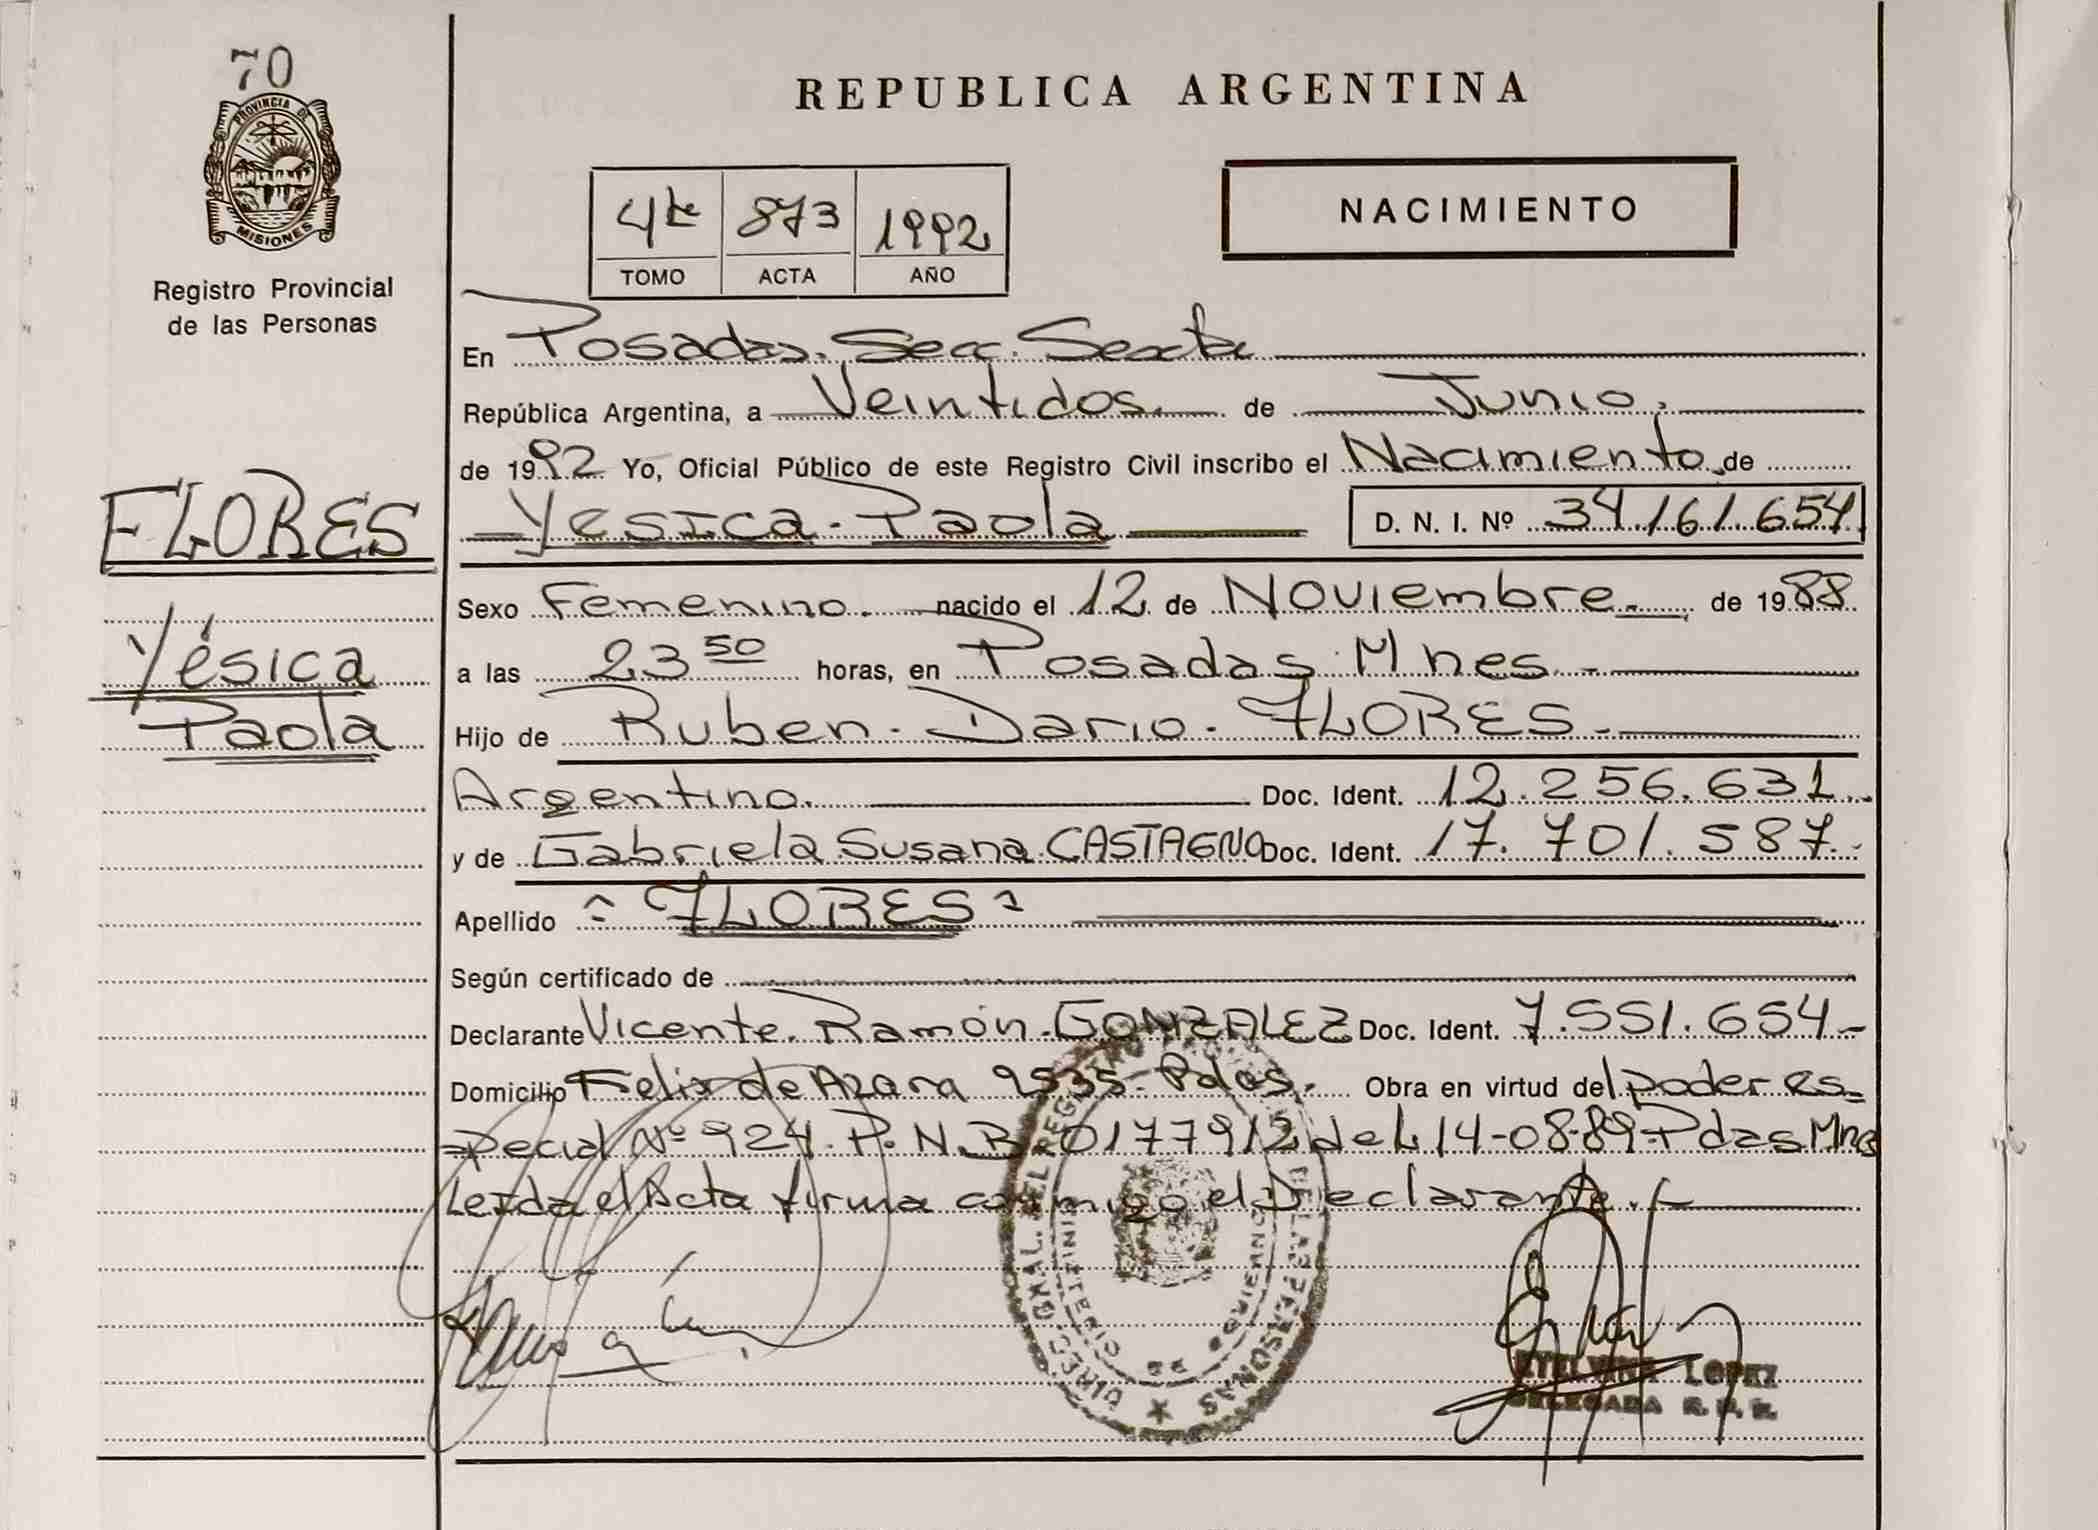 70
PROVINCIA DE
MISIONES
Registro Provincial
de las Personas
FLORES
Yésica
Paola
REPUBLICA ARGENTINA
4to 873 1992
TOMO ACTA AÑO
NACIMIENTO
En Posadas. Secc. Sexta
República Argentina, a Veintidos. de Junio.
de 1992 Yo, Oficial Público de este Registro Civil inscribo el Nacimiento de
Yesica - Paola D. N. I. Nº 34.161.654
Sexo Femenino. nacido el 12 de Noviembre. de 1988
a las 23 50 horas, en Posadas Mnes.
Hijo de Ruben - Dario - FLORES.
Argentino. Doc. Ident. 12.256.631
y de Gabriela Susana CASTAGNO Doc. Ident. 17.701.587
Apellido FLORES
Según certificado de
Declarante Vicente Ramón GONZALEZ Doc. Ident. 7.551.654
Domicilio Felix de Azara 2535 Pdas. Obra en virtud del poder es=
=pecial Nº 924. P. N. B 0177912 del 14-08-89-Pdas Mnes
Leida el Acta firma conmigo el Declarante.
DIREC. GRAL. DEL REGISTRO DE LAS PERSONAS
MINISTERIO DE GOBIERNO
ETELVINA LOPEZ
DELEGADA R. P. P.